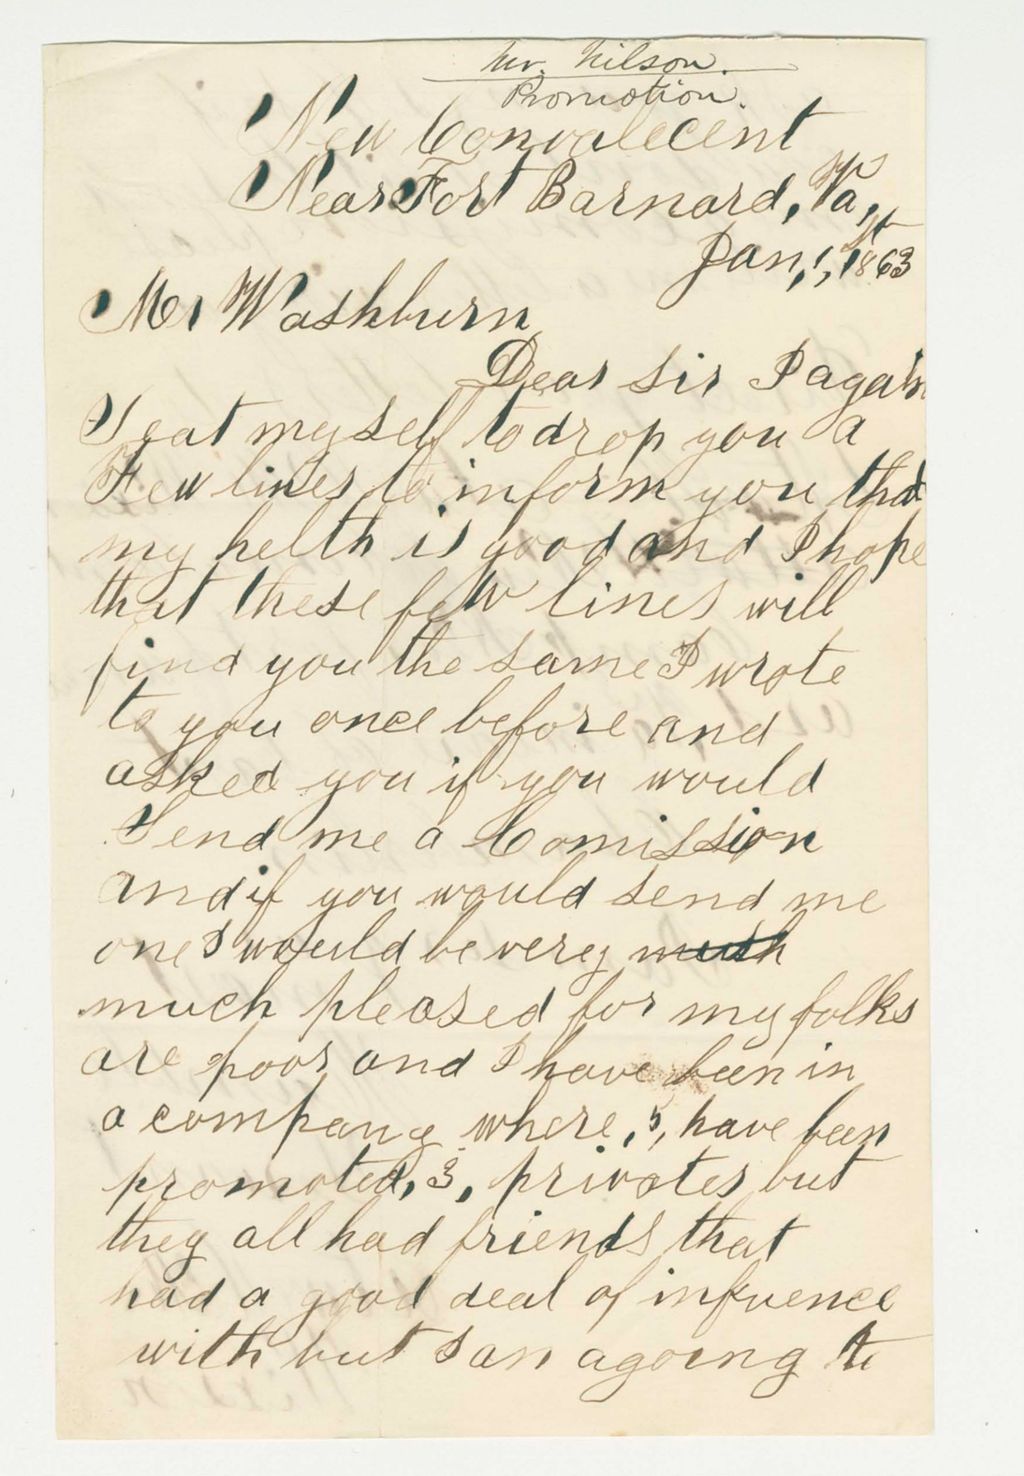 Mr. Nilson.
Promotion.
New Convalecent
Near Fort Barnard, Va,
Jan, 1st, 1863
Mr Washburn
Dear Sir I again
Seat myself to drop you a
Few lines to inform you that
my helth is good and I hope
that these few lines will
find you the same I wrote
to you once before and
asked you if you would
Send me a Comission
and if you would send me
one I would be very mush
much pleased for my folks
are poor and I have been in
a company where, 5, have been
promoted, 3, privates but
they all had friends that
had a good deal of infuence
with but I am agoing to